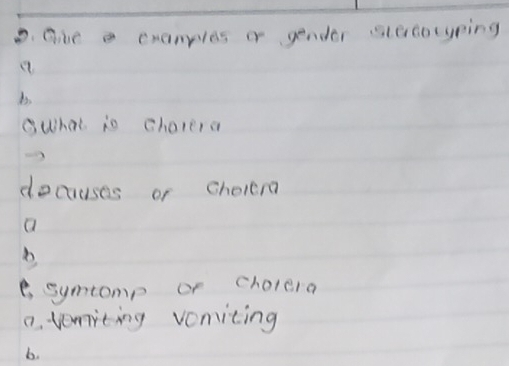 2. Give 2 examples of gender stereotyping
a
b.
c What is Cholera
→
d 2 causes of Cholera
a
b
e, symtomp of cholera
a. vomiting
b.